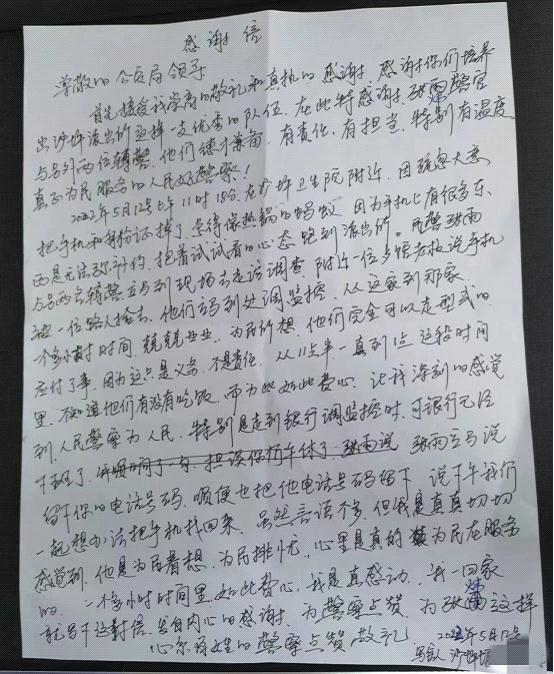 感谢信
尊敬的公安局领导
首先接受我崇高的敬礼和真执的感谢，感谢你们培养
出沙坪派出所这样一支优秀的队伍，在此特感谢张雷警官
与另外两位辅警，他们德才兼备，有责任，有担当，特别有温度
真正为民服务的人民好警察！
2022年5月12号上午11时18分，在沙坪卫生院附近，因疏忽大意
把手机和身份证掉了，急得像热锅的蚂蚁，因为手机上有很多东
西是无法弥补的，抱着试试看的心态跑到派出所。民警张雨
与另两名辅警立马到现场去走访调查，附近一位乡馆老板说手机
被一位路人捡去，他们马到处调监控，从这家到那家，
一个多小时时间，兢兢业业，为民所想，他们完全可以走型式的
应付了事，因为这只是义务，不是责任，从11点半一直到1点这段时间
里，不知道他们有没有吃饭，而为此如此费心，让我深刻的感觉
到，人民警察为人民，特别是走到银行调监控时，可银行已经
下班了，
张雨立马说
留下你的电话号码，顺便也把他电话号码留下，说下午我们
一起想办法把手机找回来，虽然言语不多，但我是真真切切
感觉到，他是为民着想，为民排忧，心里是真的为民在服务
的，一个多小时时间里，如此费心，我是真感动，我一回家
就写下这封信，发自内心的感谢，为警察点赞，为张
这样
心系百姓的警察点赞敬礼
2022年5月12号
写信人 沙坪